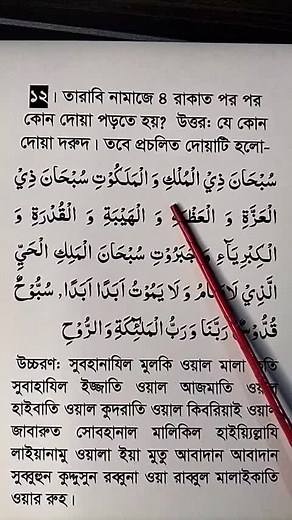 ১২। তারাবি নামাজে ৪ রাকাত পর পর
কোন দোয়া পড়তে হয়? উত্তর: যে কোন
দোয়া দরুদ। তবে প্রচলিত দোয়াটি হলো-
سُبْحَانَ ذِي الْمُلْكِ وَ الْمَلَكُوْتِ سُبْحَانَ ذِي
الْعِزَّةِ وَ الْعَظَمَةِ وَ الْهَيْبَةِ وَ الْقُدْرَةِ وَ
الْكِبْرِيَآءِ وَ جَبَرُوْتِ سُبْحَانَ الْمَلِكِ الْحَيِّ
الَّذِيْ لَا يَنَامُ وَ لَا يَمُوْتُ اَبَدًا اَبَدًا, سُبُّوْحٌ
قُدُّوْسٌ رَبُّنَا وَ رَبُّ الْمَلٰٓئِكَةِ وَ الرُّوْحِ
উচ্চারণ: সুবহানাযিল মুলকি ওয়াল মালা
সুবাহাযিল ইজ্জাতি ওয়াল আজমাতি ওয়াল
হাইবাতি ওয়াল কুদরাতি ওয়াল কিবরিয়াই ওয়াল
জাবারুত সোবহানাল মালিকিল হাইয়্যিল্লাযি
লাইয়ানামু ওয়ালা ইয়া মুতু আবাদান আবাদান
সুব্বুহুন কুদ্দুসুন রব্বুনা ওয়া রাব্বুল মালাইকাতি
ওয়ার রুহ।